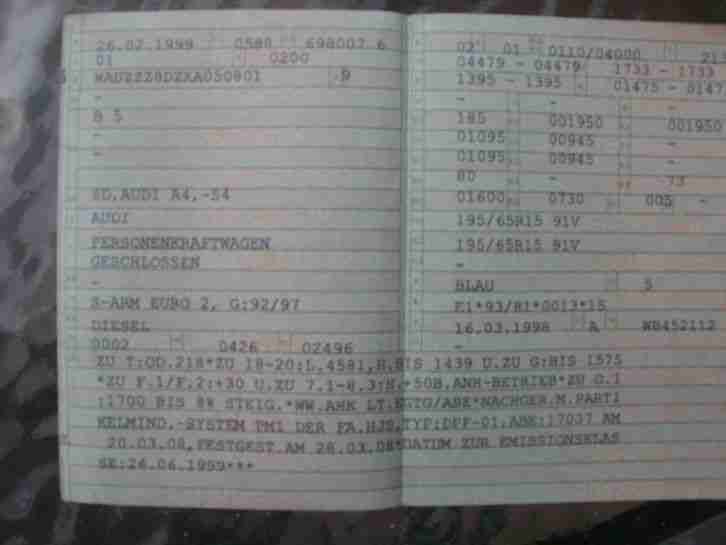 26.02.1999 0588 698007 6
01 0200
WAUZZZ8DZXA050801 9
-
B 5
-
-
8D,AUDI A4,-S4
AUDI
PERSONENKRAFTWAGEN
GESCHLOSSEN
-
S-ARM EURO 2, G:92/97
DIESEL
0002 0426 02496
02 01 0110/04000
04479 - 04479 1733 - 1733
1395 - 1395 01475 -
- - -
185 001950 001950
01095 00945 -
01095 00945 -
80 - 73
01600 0730 005 -
195/65R15 91V
195/65R15 91V
-
BLAU 5
E1*93/81*0013*15
16.03.1998 A WB452112
-
ZU T:OD.218*ZU 18-20:L.4581,H.BIS 1439 U.ZU G:BIS 1575
*ZU F.1/F.2:+30 U.ZU 7.1-8.3:H.+50B.ANH-BETRIEB*ZU O.1
:1700 BIS 8% STEIG.*WW.AHK LT.EGTG/ABE*NACHGER.M.PARTI
KELMIND.-SYSTEM PM1 DER FA.HJS,TYP:DPF-01,ABE:17037 AM
20.03.08,FESTGEST.AM 28.03.08*DATUM ZUR EMISSIONSKLAS
SE:26.06.1999***